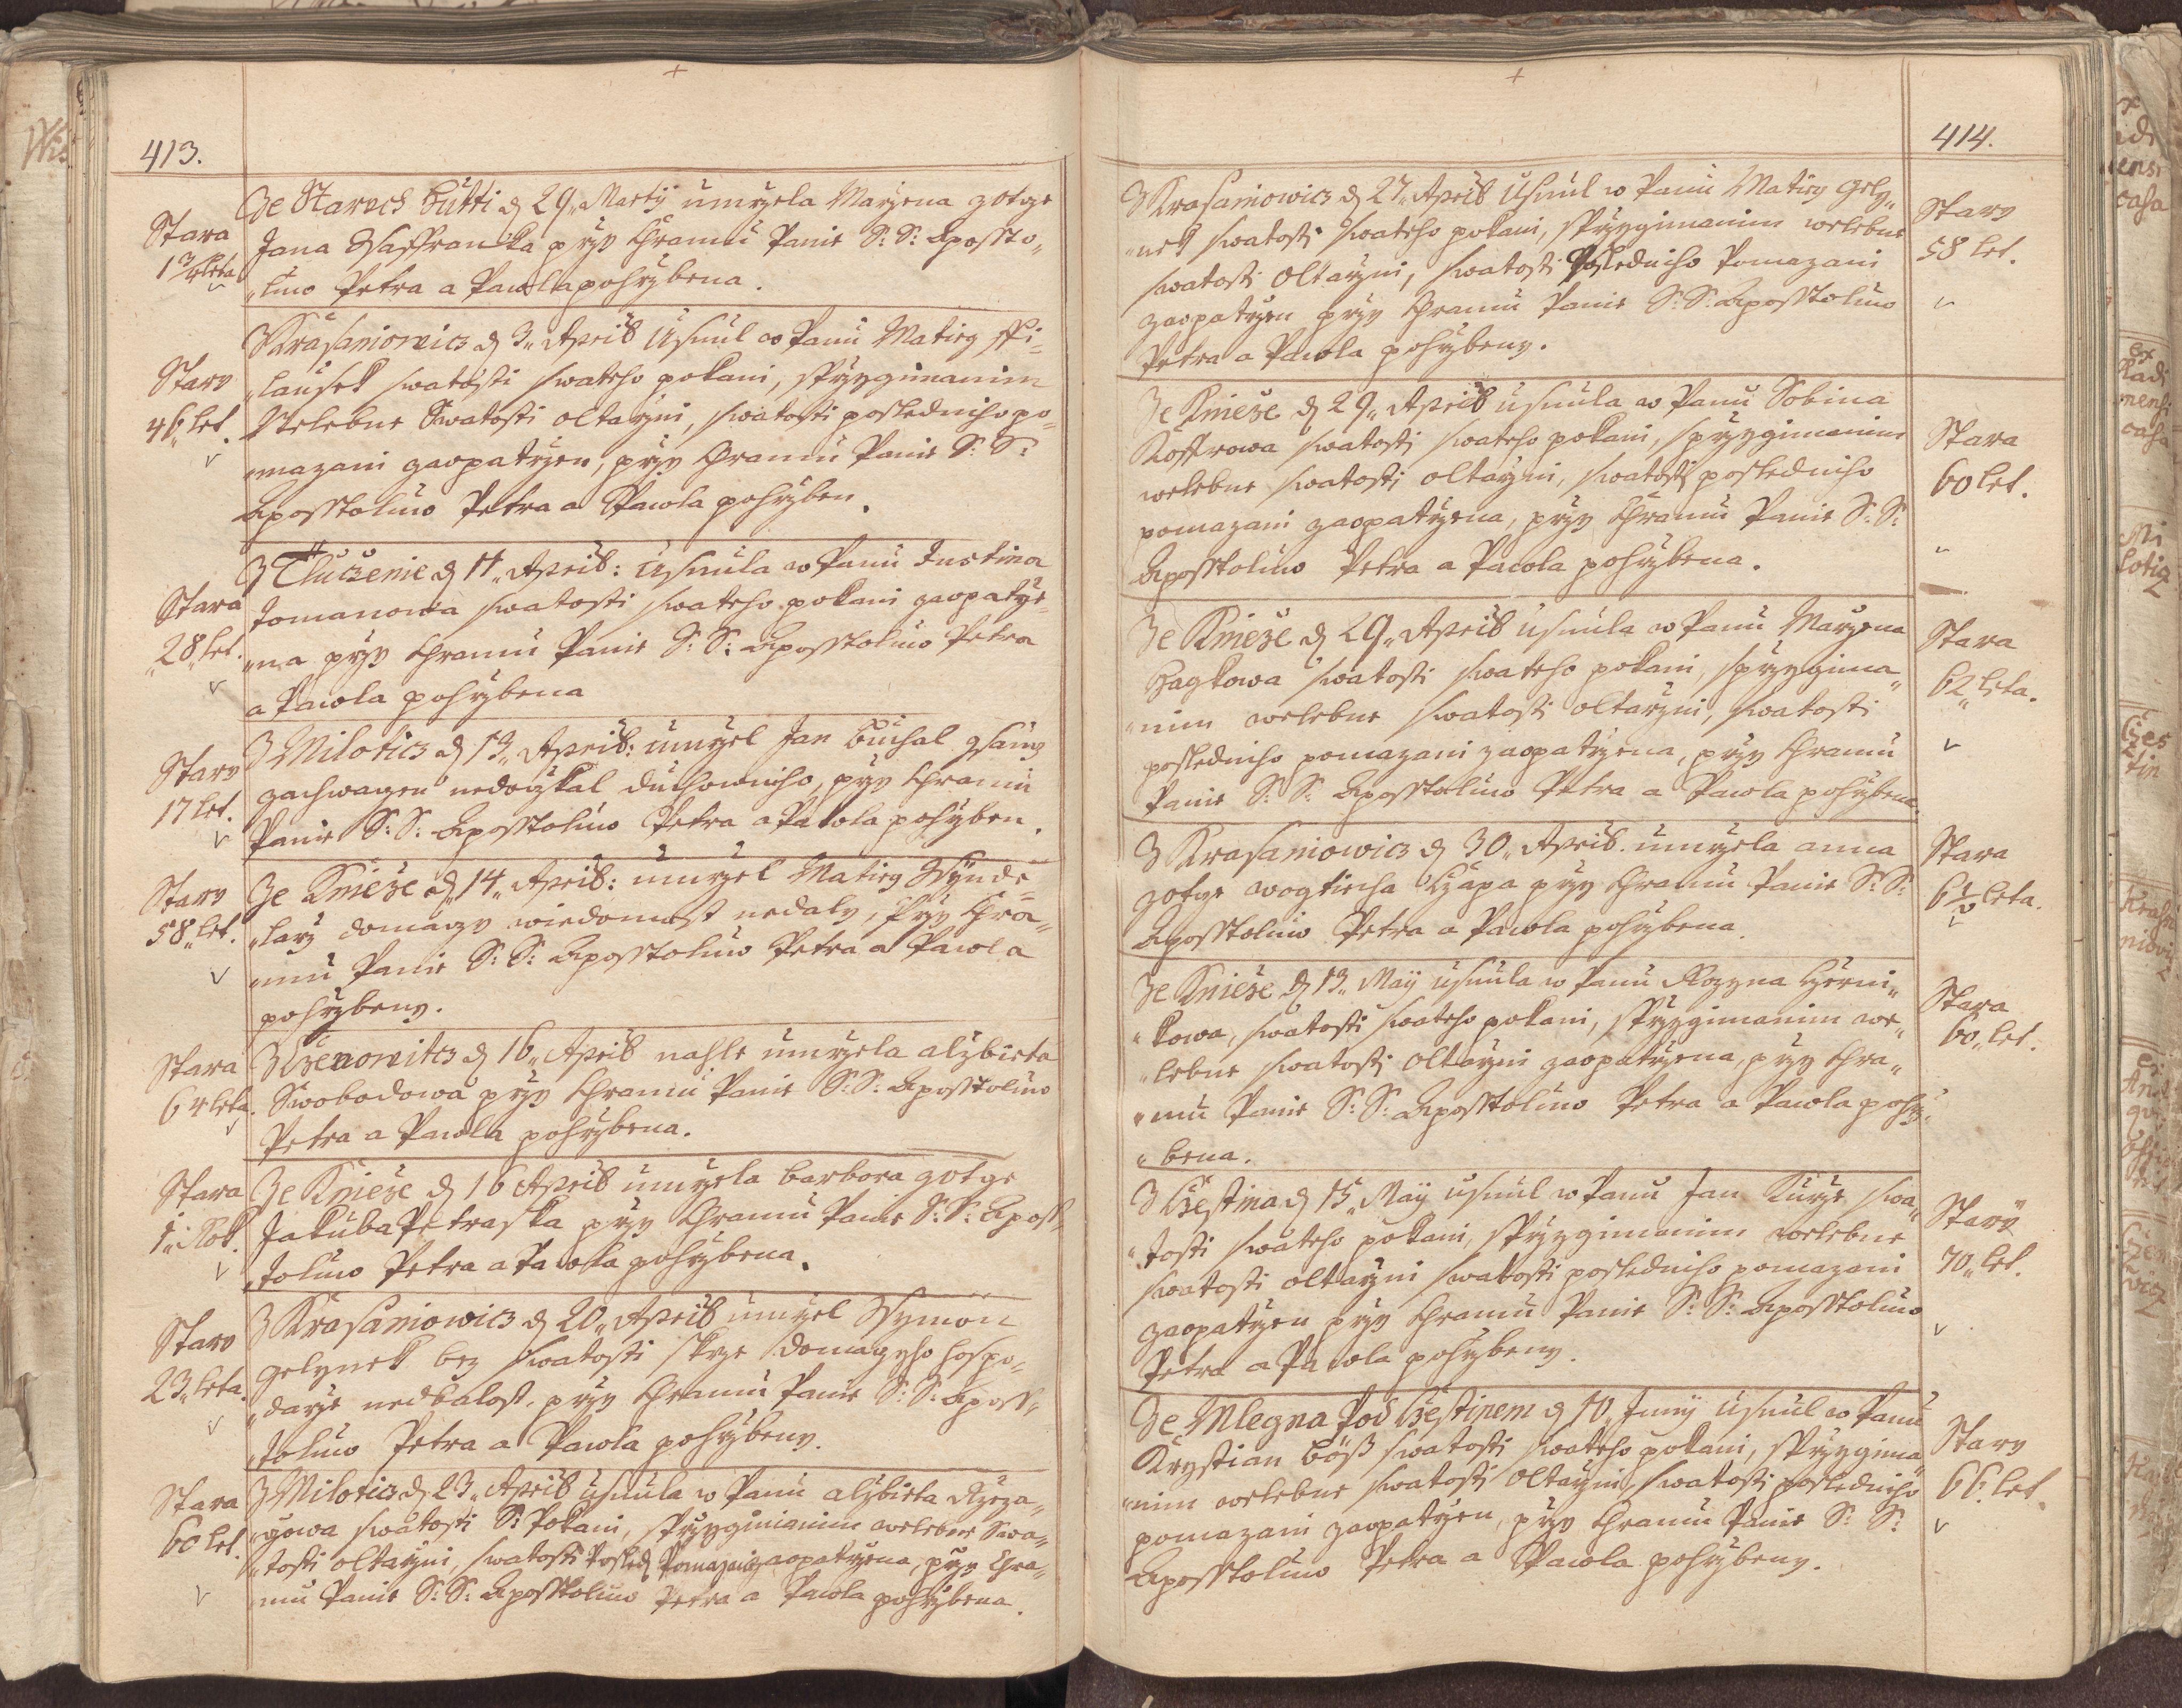 413.
Ze Starech Hutti d 29. Martij umrzela Maryena zotge
Jana Ssaffranka przy Chramu Panie S: S: Aposto„
„luw Petra a Pawla pohrzbena.
Stara
1 3/4 leta
Z Krasniowicz d 3. April Usnul w Panu Matieg
„lausek swatosti swateho pokani, sprzygimanim
Welebne Swatosti oltarzni, swatosti posledniho po„
„mazani zaopatrzen, przy Chramu Panie S: S:
Aposstoluw Petra a Pawla pohrzben.
Stary
46 let.
Z Tluczenie d 11. April: Usnula w Panu Justina
Tomanowa swatosti swateho pokani zaopatrze„
„na przy Chramu Panie S: S: Aposstoluw Petra
a Pawla pohrzbena
Stara
28 let.
Z Miloticz d 13. April: umrzel Jan Buchal
zachwaczen nedoczkal duchowniho, przy Chramu
Panie S: S: Aposstoluw Petra a Pawla pohrzben.
Stary
17 let.
Ze Knieze d 14. April: umrzel Matieg
„larz domaczy wiedomost nedaly, przy Chra„
„mu Panie S: S: Aposstoluw Petra a Pawla
pohrzbeny.
Stary
58 let.
Z d 16. April nahle umrzela alzbieta
Swobodowa przy Chramu Panie S: S: Aposstoluw
Petra a Pawla pohrzbena.
Stara
64 leta.
Ze Knieze d 16 April umrzela barbora zotge
Jakuba Petraska przy Chramu Panie S: S: Apos„
„toluw Petra a Pawla pohrzbena.
Stara
1. Rok.
Z Krasaniowicz d 20. April umrzel Ssymon
Gelynek bez swatosti skrze domaczyho hospo„
„darze nedbalost, przy Chramu Panie S: S: Apos„
„toluw Petra a Pawla pohrzbeny.
Stary
23 leta.
Z Miloticz d 23. April usnula w Panu alzbieta Rzeza„
„czowa swatosti S: Pokani, sprzygimanim welebne Swa„
„tosti oltarzni, swatosti Posled Pomazani zaopatrzena, przy Chra„
„mu Panie S: S: Aposstoluw Petra a Pawla pohrzbena.
Stara
60 let.
414.
Z Krasaniowicz d 27. April Usnul w Panu Matieg Gely„
„nek swatosti swateho pokani, sprzygimanim welebne
swatosti oltarzni, swatosti Posledniho Pomazani
zaopatrzen przy Chramu Panie S: S: Aposstoluw
Petra a Pawla pohrzbeny.
Stary
58 let.
Ze Knieze d 29. April usnula w Panu Sobina
Kosstowa swatosti swateho pokani, sprzygimanim
welebne swatosti oltarzni, swatosti posledniho
pomazani zaopatrzena, przy Chramu Panie S: S:
Aposstoluw Petra a Pawla pohrzbena.
Stara
60 let.
Ze Knieze d 29. April usnula w Panu Maryena
Hagkowa swatosti swateho pokani, sprzygima„
„nim welebne swatosti oltarzni, swatosti
posledniho pomazani zaopatrzena, przy Chramu
Panie S: S: Aposstoluw Petra a Pawla pohrzbena.
Stara
62 leta.
Z Krasaniowicz d 30. April. umrzela anna
zotge wogtiecha Czapa przy Chramu Panie S: S:
Aposstoluw Petra a Pawla pohrzbena.
Stara
6 1/2 leta.
Ze Knieze d 13. Maij usnula w Panu Rozyna Czerni„
„kowa, swatosti swateho pokani, sprzygimanim we„
„lebne swatosti oltarzni zaopatrzena, przy Chra„
„mu Panie S: S: Aposstoluw Petra a Pawla pohrz„
„bena.
Stara
60 let.
Z Czestina d 15. Maij usnul w Panu Jan Kurze swa„
„tosti swateho pokani, sprzygimanim welebne
swatosti oltarzni swatosti posledniho pomazani
zaopatrzen przy Chramu Panie S: S: Aposstoluw
Petra a Pawla pohrzbeny.
Stary
70 let.
Ze Mlegna Pod Czestinem d 10. Junij usnul w Panu
Krystian böß swatosti swateho pokani, sprzygima„
„nim welebne swatosti oltarzni, swatosti posledniho
pomazani zaopatrzen, przy Chramu Panie S: S:
Aposstoluw Petra a Pawla pohrzbeny.
Stary
66 let.